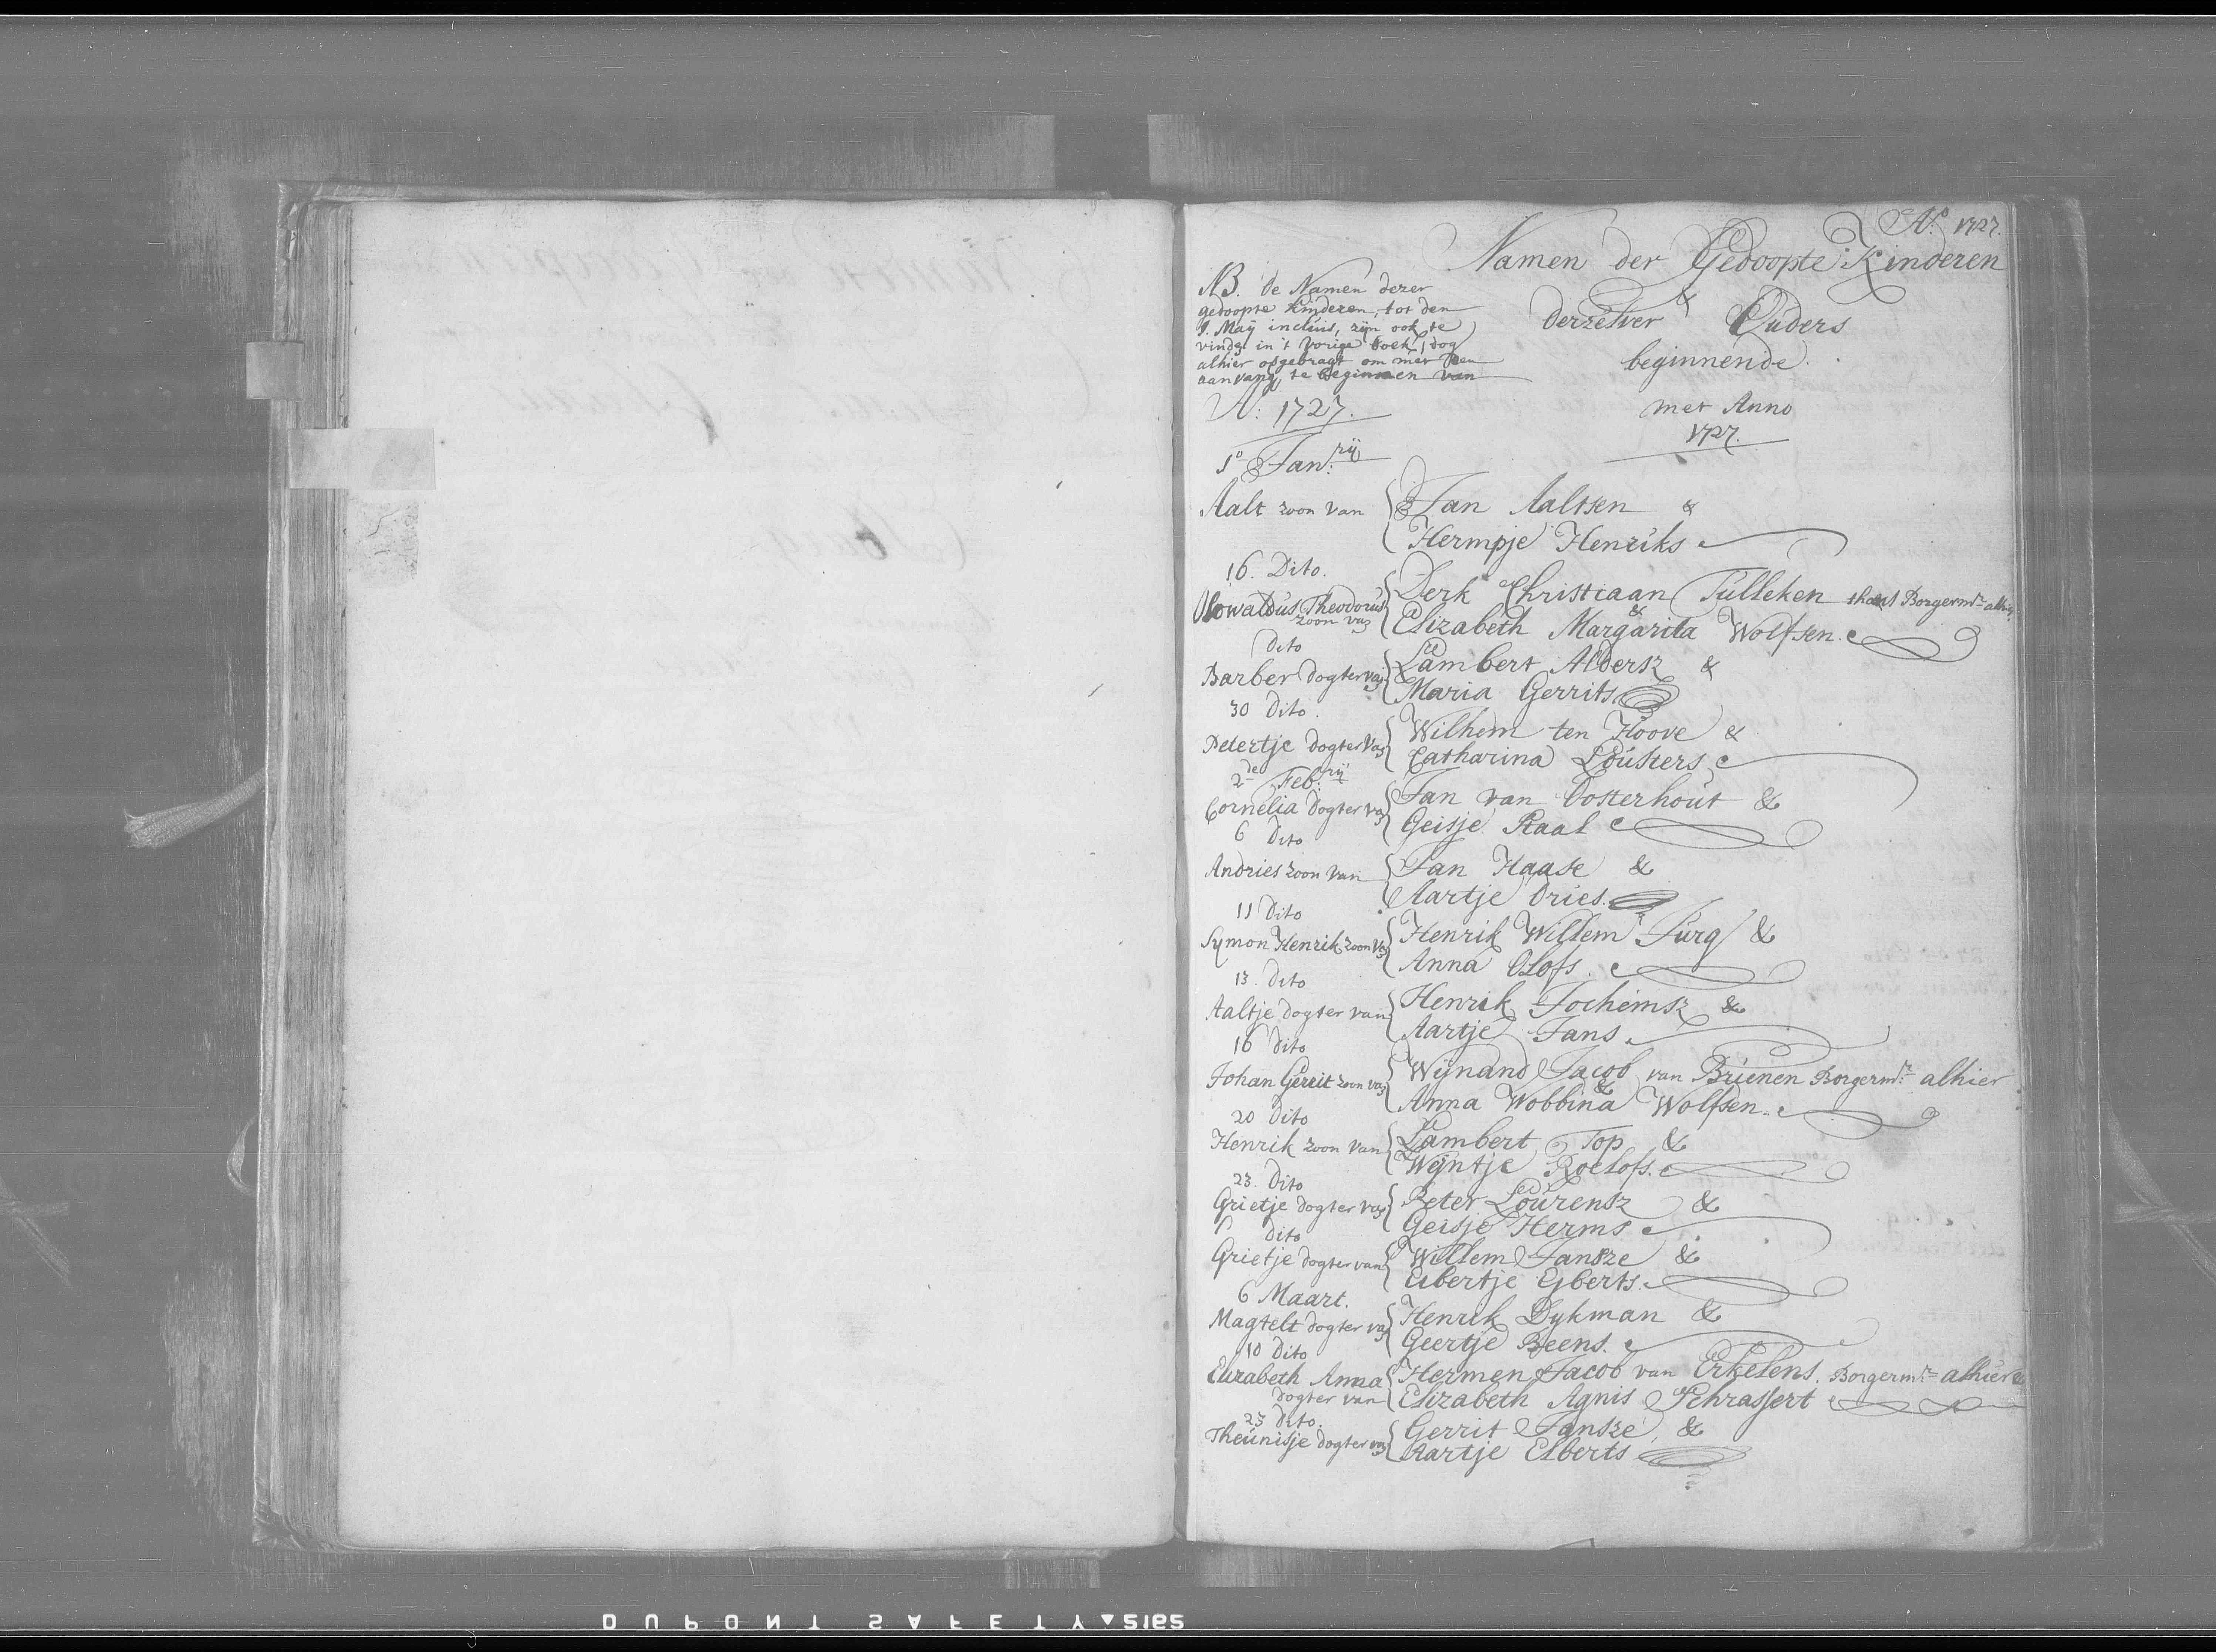 A.o 1727.
Namen der Gedoopte Kinderen
&
derzelver Ouders
beginnende
met Anno
1727.
NB. de Namen dezer
gedoopte Kinderen, tot den
1. Maij incluis, zijn ook te
vinden in 't vorige boek, dog
alhier opgebragt om met den
aanvang te beginnen van
A: 1727.
1o Jan:rij
Aalt zoon van { Jan Aaltsen &
Hermpje Henriks
16. Dito.
Oswaldus Theodorus zoon van { Derk Christiaan Tulleken thans Borgermr. alhier &
Elizabeth Margarita Wolfsen.
Dito
Barber dogter van { Lambert Aldersz &
Maria Gerrits
30 Dito.
Petertje dogter van { Wilhem ten Hoove &
Catharina Lousters
2de Feb:rij
Cornelia dogter van { Jan van Oosterhout &
Geisje Staal
6 Dito
Andries zoon van { Jan Haase &
Aartje Dries.
11 Dito
Symon Henrik zoon van { Henrik Willem Jurg &
Anna Olofs.
13. Dito
Aaltje dogter van { Henrik Jochemsz &
Aartje Jans
16 Dito
Johan Gerrit zoon van { Wijnand Jacob van Brienen Borgermr. alhier
&
Anna Wobbina Wolfsen.
20 Dito
Henrik zoon van { Lambert Top &
Wijntje Roelofs.
23. Dito
Grietje dogter van { Peter Lourensz &
Geisje Herms
dito
Grietje dogter van { Willem Jansze &
Eibertje Eiberts.
6 Maart.
Magtelt dogter van { Henrik Dykman &
Geertje Beens.
10 Dito
Elizabeth Anna dogter van { Hermen Jacob van Erkelens, Borgermr. alhier &
Elizabeth Agnis Schrassert
23 Dito.
Theunisje dogter van { Gerrit Jansze, &
Aartje Elberts
DUPONT SAFETY▲5162